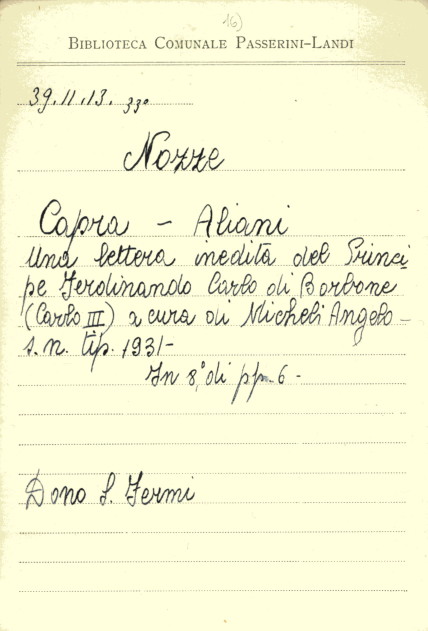 16)
BIBLIOTECA COMUNALE PASSERINI-LANDI
39.11.13. 33°
Nozze
Capra - Aliani
Una lettera inedita del Princi
pe Ferdinando Carlo di Borbone
(Carlo III) a cura di Micheli Angelo -
s.n. tip. 1931-
In 8,° di pp. 6 -
Dono S. Fermi